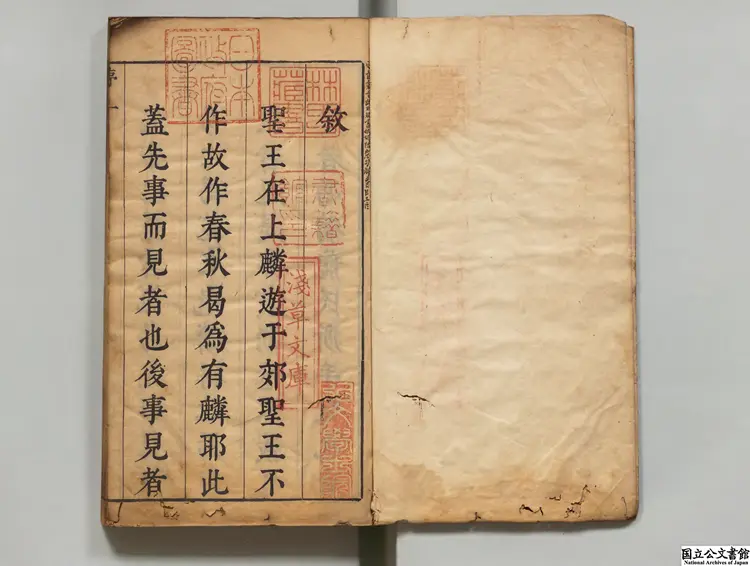 敘
聖王在上麟遊于郊聖王不
作故作春秋曷為有麟耶此
蓋先事而見者也後事見者
日本
政府
圖書
林氏
藏書
淺草文庫
国立公文書館
National Archives of Japan